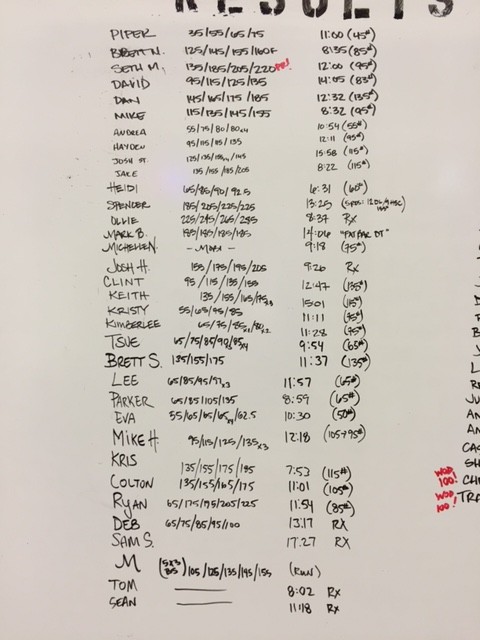 RESULTS
PIPER 35/55/65/75 11:00 (45#)
BRETT N. 125/145/155/160F 8:35 (85#)
SETH M. 135/185/205/220 PR! 12:00 (95#)
DAVID 95/115/125/135 14:05 (83#)
DAN 145/165/175/185 12:32 (135#)
MIKE 115/135/145/155 8:32 (95#)
ANDREA 55/75/80/80x4 10:54 (55#)
HAYDEN 95/115/85/135 12:11 (95#)
JOSH ST. 125/135/155x4/145 15:58 (115#)
JAKE 135/155/185/205 8:22 (115#)
HEIDI 65/85/90/92.5 6:31 (60#)
SPENCER 185/205/225/225 13:25
OLLIE 225/245/265/285 8:37 Rx
MARK B. 185/185/185/185 14:06 "FAT BAR DT"
MICHELLE N. 9:18 (75#)
JOSH H. 155/175/195/205 9:26 Rx
CLINT 95/115/135/155 12:47 (135#)
KEITH 135/155/165/175x3 15:01 (115#)
KRISTY 55/65/95/85 11:11 (75#)
KIMBERLEE 65/75/85x1/80x2 11:28 (75#)
TSUE 65/75/85/90x3/85x4 9:54 (65#)
BRETT S. 135/155/175 11:37 (135#)
LEE 65/85/95/97x3 11:57 (65#)
PARKER 65/85/105/135 8:59 (65#)
EVA 55/65/65/65x4/62.5 10:30 (50#)
MIKE H. 95/115/125/135x3 12:18 (105→95#)
KRIS 135/155/175/185 7:53 (115#)
COLTON 135/155/165/175 11:01 (105#)
RYAN 65/175/195/205/225 11:54 (85#)
DEB 65/75/85/95/100 13:17 RX
SAM S. 17:27 RX
M (5x3 85) 105/125/135/145/155 (RUN)
TOM 8:02 Rx
SEAN 11:18 Rx
WOD 100!
WOD 100!